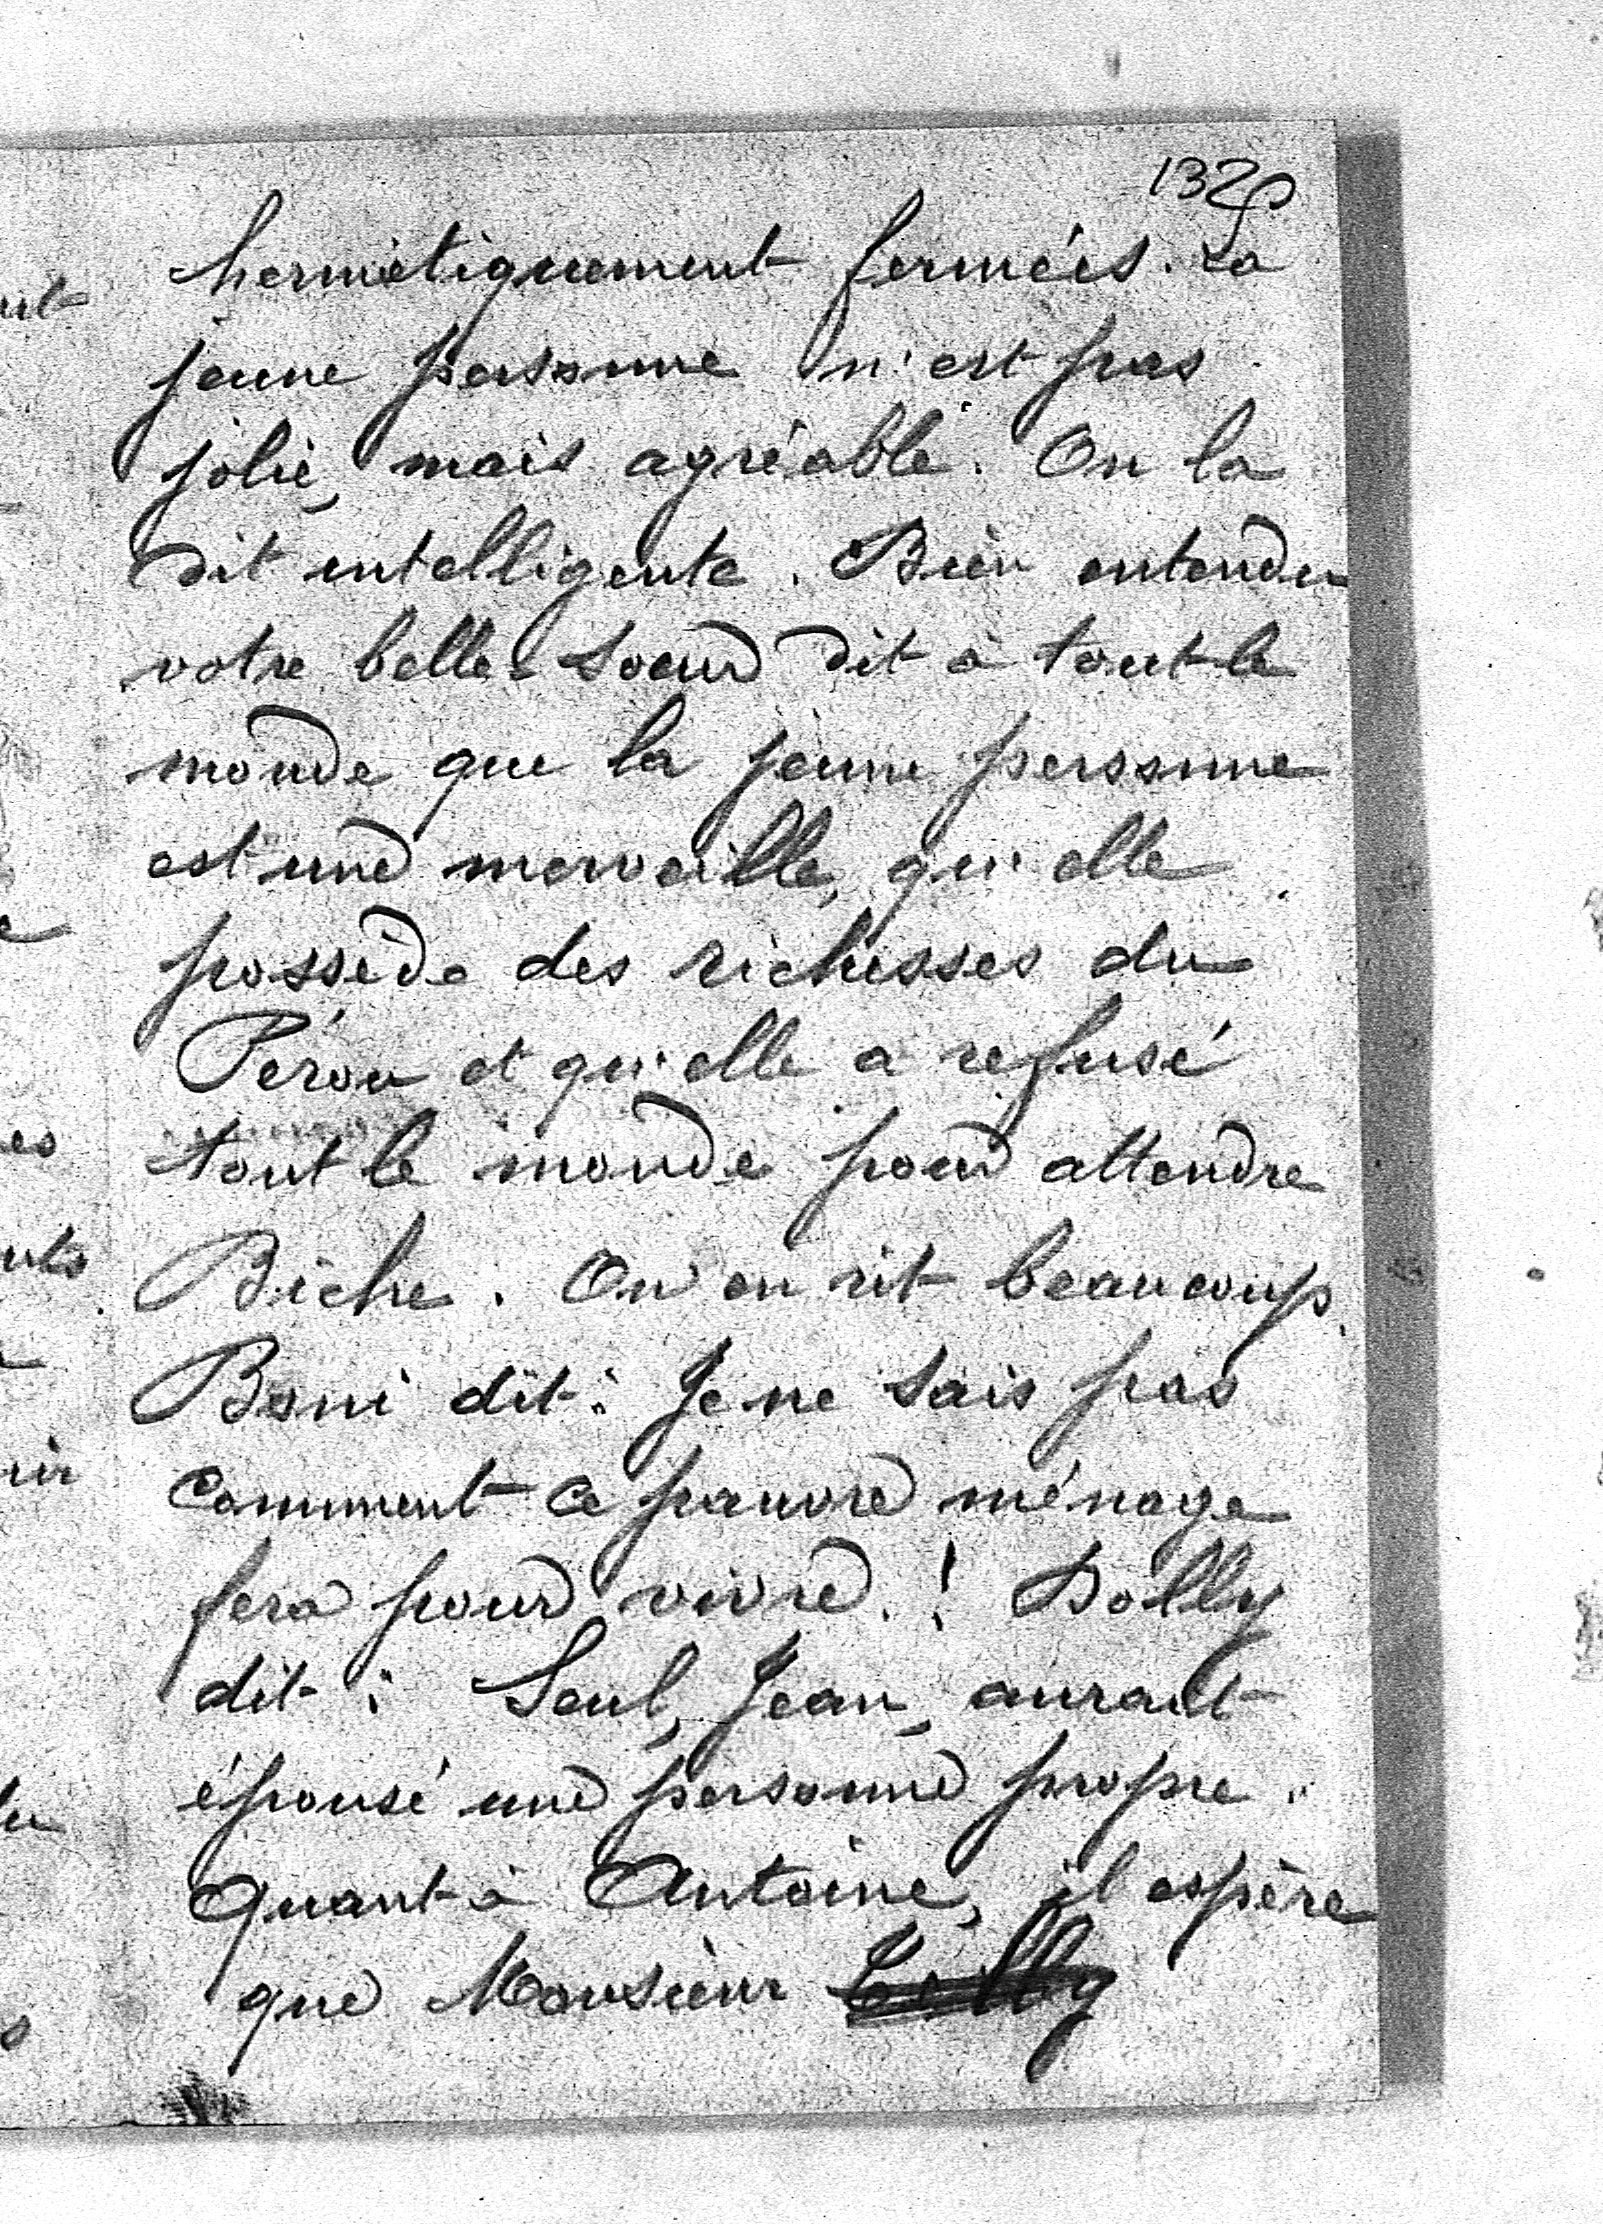 132
hermétiquement fermées. La
jeune personne n'est pas
jolie, mais agréable. On la
dit intelligente. Bien entendu
votre belle-soeur dit à tout le
monde que la jeune personne
est une merveille, qu'elle
possède des richesses du
Pérou et qu'elle a refusé
tout le monde pour attendre
Biche. On en rit beaucoup.
Boni dit : Je ne sais pas
comment ce pauvre ménage
fera pour vivre ! Dolly
dit : Seul, Jean, aurait
épousé une personne propre.
Quant à Antoine, il espère
que Monsieur